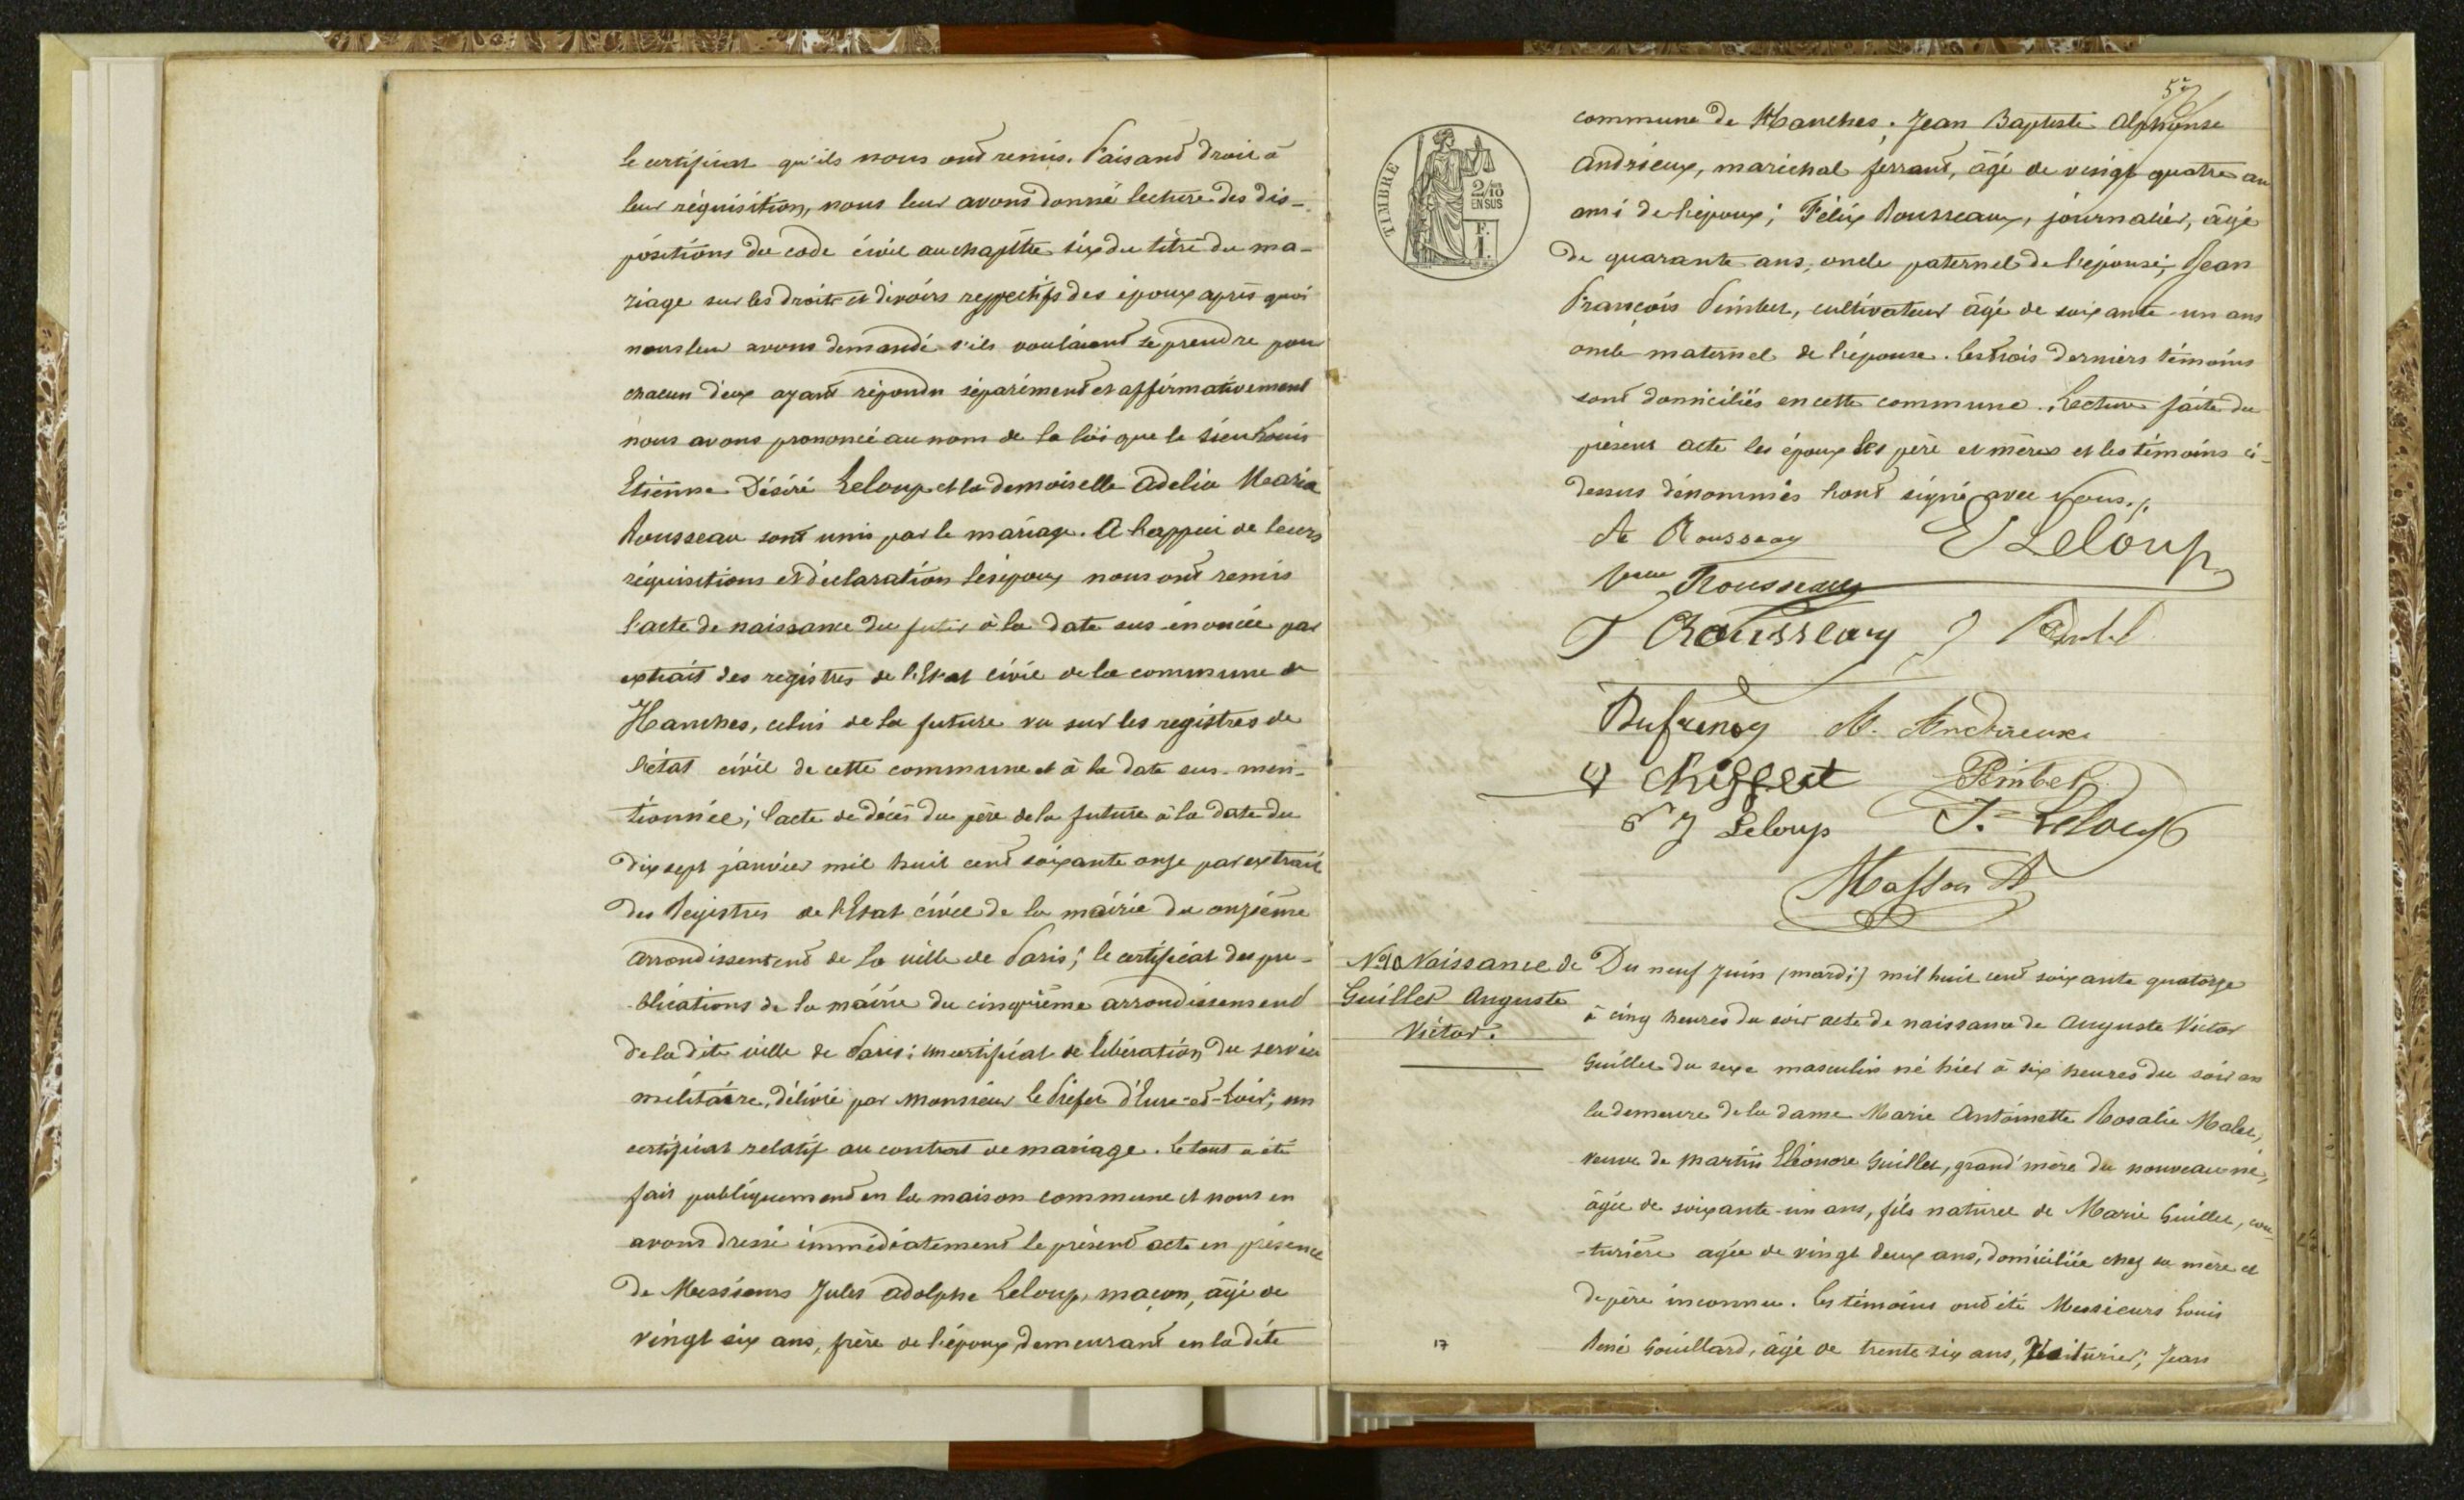 le certificat qu'ils nous ont remis. Faisant droit à
leur réquisition, nous leur avons donné lecture des dis-
positions du code civil au chapître six du titre du ma-
riage sur les droits et devoirs respectifs des époux après quoi
nous leur avons demandé s'ils voulaient se prendre pour
chacun d'eux ayant répondu séparément et affirmativement
nous avons prononcé au nom de la loi que le sieur Louis
Etienne Désiré Leloup et la demoiselle Adelia Maria
Rousseau sont unis par le mariage. A l'appui de leurs
réquisitions et déclaration les époux nous ont remis
l'acte de naissance du futur à la date sus-énoncée par
extrait des registres de l'Etat civil de la commune de
Hanches, celui de la future vu sur les registres de
l'état civil de cette commune et à la date sus-men-
tionnée; l'acte de décès du père de la future à la date du
dix sept janvier mil huit cent soixante onze par extrait
des Registres de l'Etat civil de la mairie du onzième
arrondissement de la ville de Paris; le certificat des pu-
-blications de la mairie du cinquième arrondissement
de la dite ville de Paris; un certificat de libération du service
militaire, délivré par Monsieur le Préfet d'Eure-et-Loir; un
certificat relatif au contrat de mariage. Le tout a été
fait publiquement en la maison commune et nous en
avons dressé immédiatement le présent acte en présence
de Messieurs Jules Adolphe Leloup, maçon, âgé de
vingt six ans, frère de l'époux demeurant en la dite
TIMBRE
2/10 EN SUS
commune de Hanches. Jean Baptiste Alphonse
Andrieux, maréchal ferrant, âgé de vingt quatre an
ami de l'époux; Félix Rousseaux, journalier, âgé
de quarante ans, oncle paternel de l'épouse; Jean
François Pimbet, cultivateur âgé de soixante-un ans
oncle maternel de l'épouse. Les trois derniers témoins
sont domiciliés en cette commune. Lecture faite du
présent acte les époux les père et mères et les témoins ci-
dessus dénommés l'ont signé avec nous./.
A Rousseau E Leloup
Veuve Rousseaux
F Rousseaux J
Dufrenoy A. Andrieux
Pimbet
J Leloup J. Leloup
Masson A
No 10 Naissance de
Guillet Auguste
Victor.
Du neuf juin (mardi) mil huit cent soixante quatorze
à cinq heures du soir acte de naissance de Auguste Victor
Guillet du sexe masculin né hier à six heures du soir en
la demeure de la dame Marie Antoinette Rosalie Malet,
veuve de Martin Eléonore Guillet, grand'mère du nouveau né,
âgée de soixante-un ans, fils naturel de Marie Guillet, cou
-turière agée de vingt deux ans, domiciliée chez sa mère et
de père inconnu. Les témoins ont été Messieurs Louis
René Gouillard, âgé de trente six ans, Voiturier; Jean
17